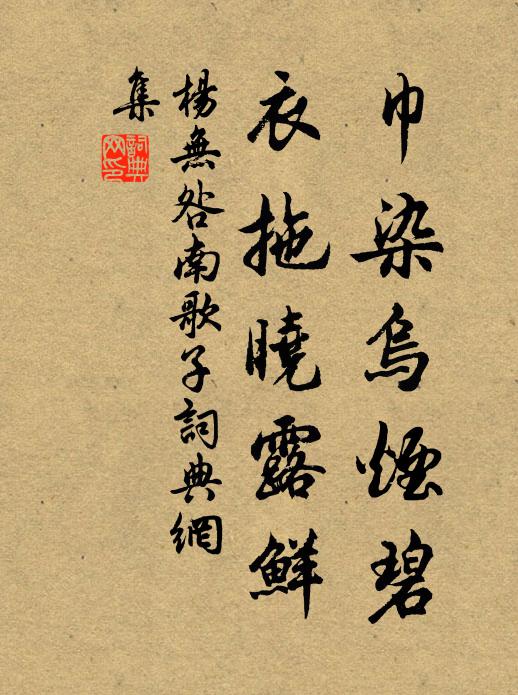 巾染烏煙碧
衣拖曉露鮮
楊無咎南歌子詞典網
集
詞典網印